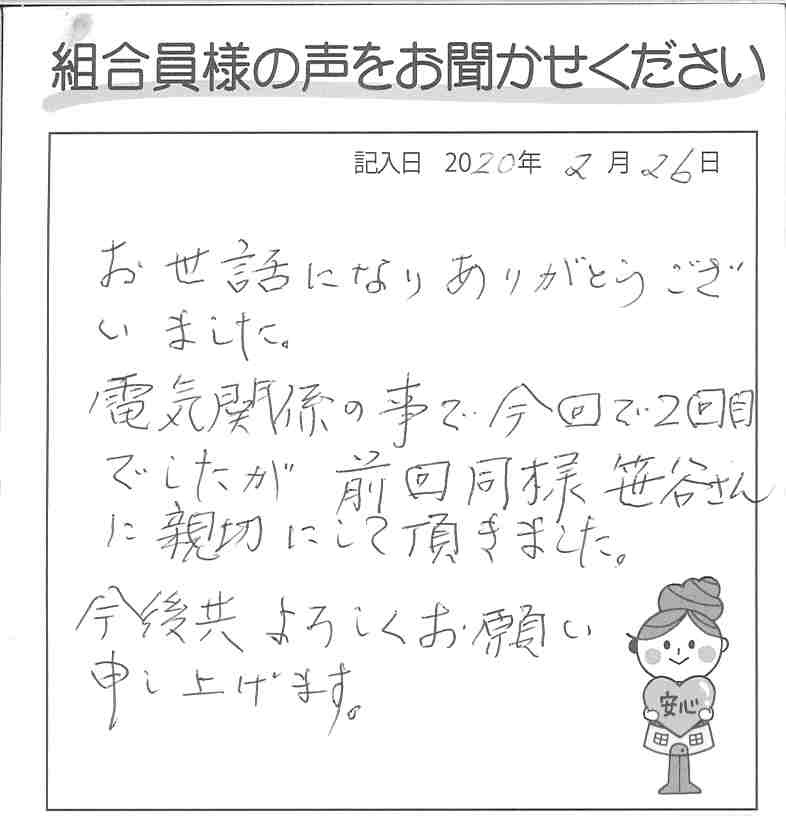 組合員様の声をお聞かせください
記入日 2020年 2月26日
お世話になりありがとうござ
いました。
電気関係の事で今回で2回目
でしたが 前回同様 笹谷さん
に親切にして頂きました。
今後共よろしくお願い
申し上げます。
安心